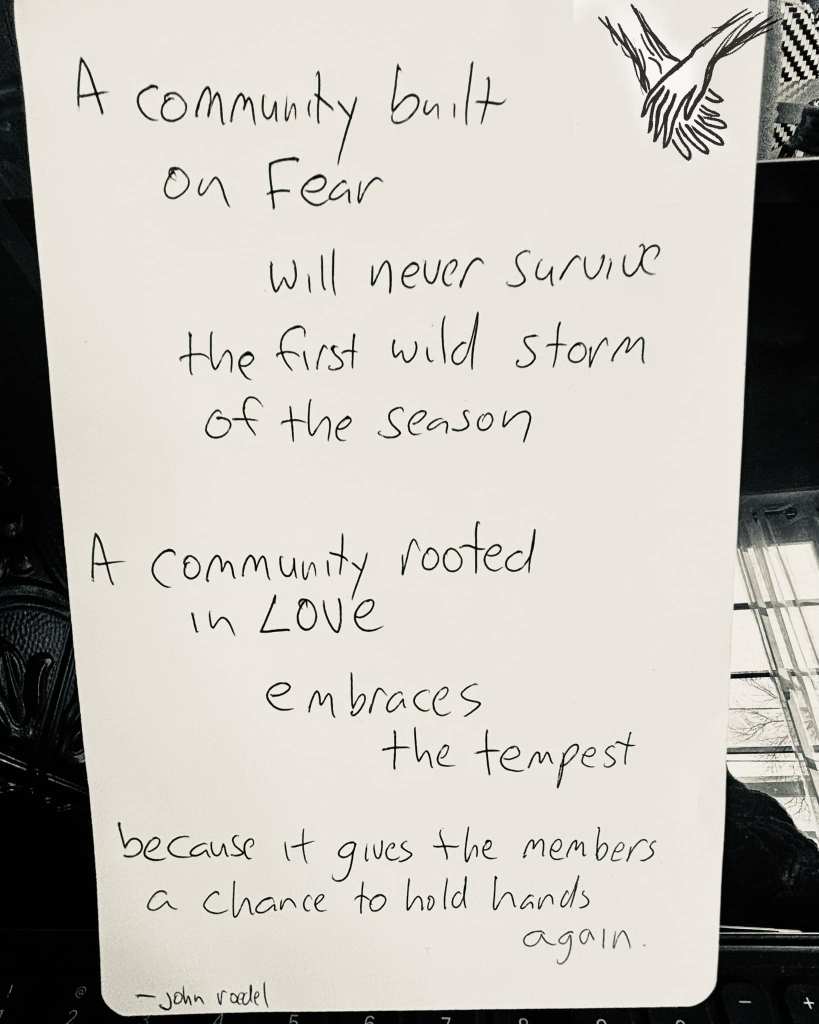 A community built
on Fear
will never survive
the first wild storm
of the season
A community rooted
in LOVE
embraces
the tempest
because it gives the members
a chance to hold hands
again.
- john roedel
! @
2 5 6 7 8 9 - +